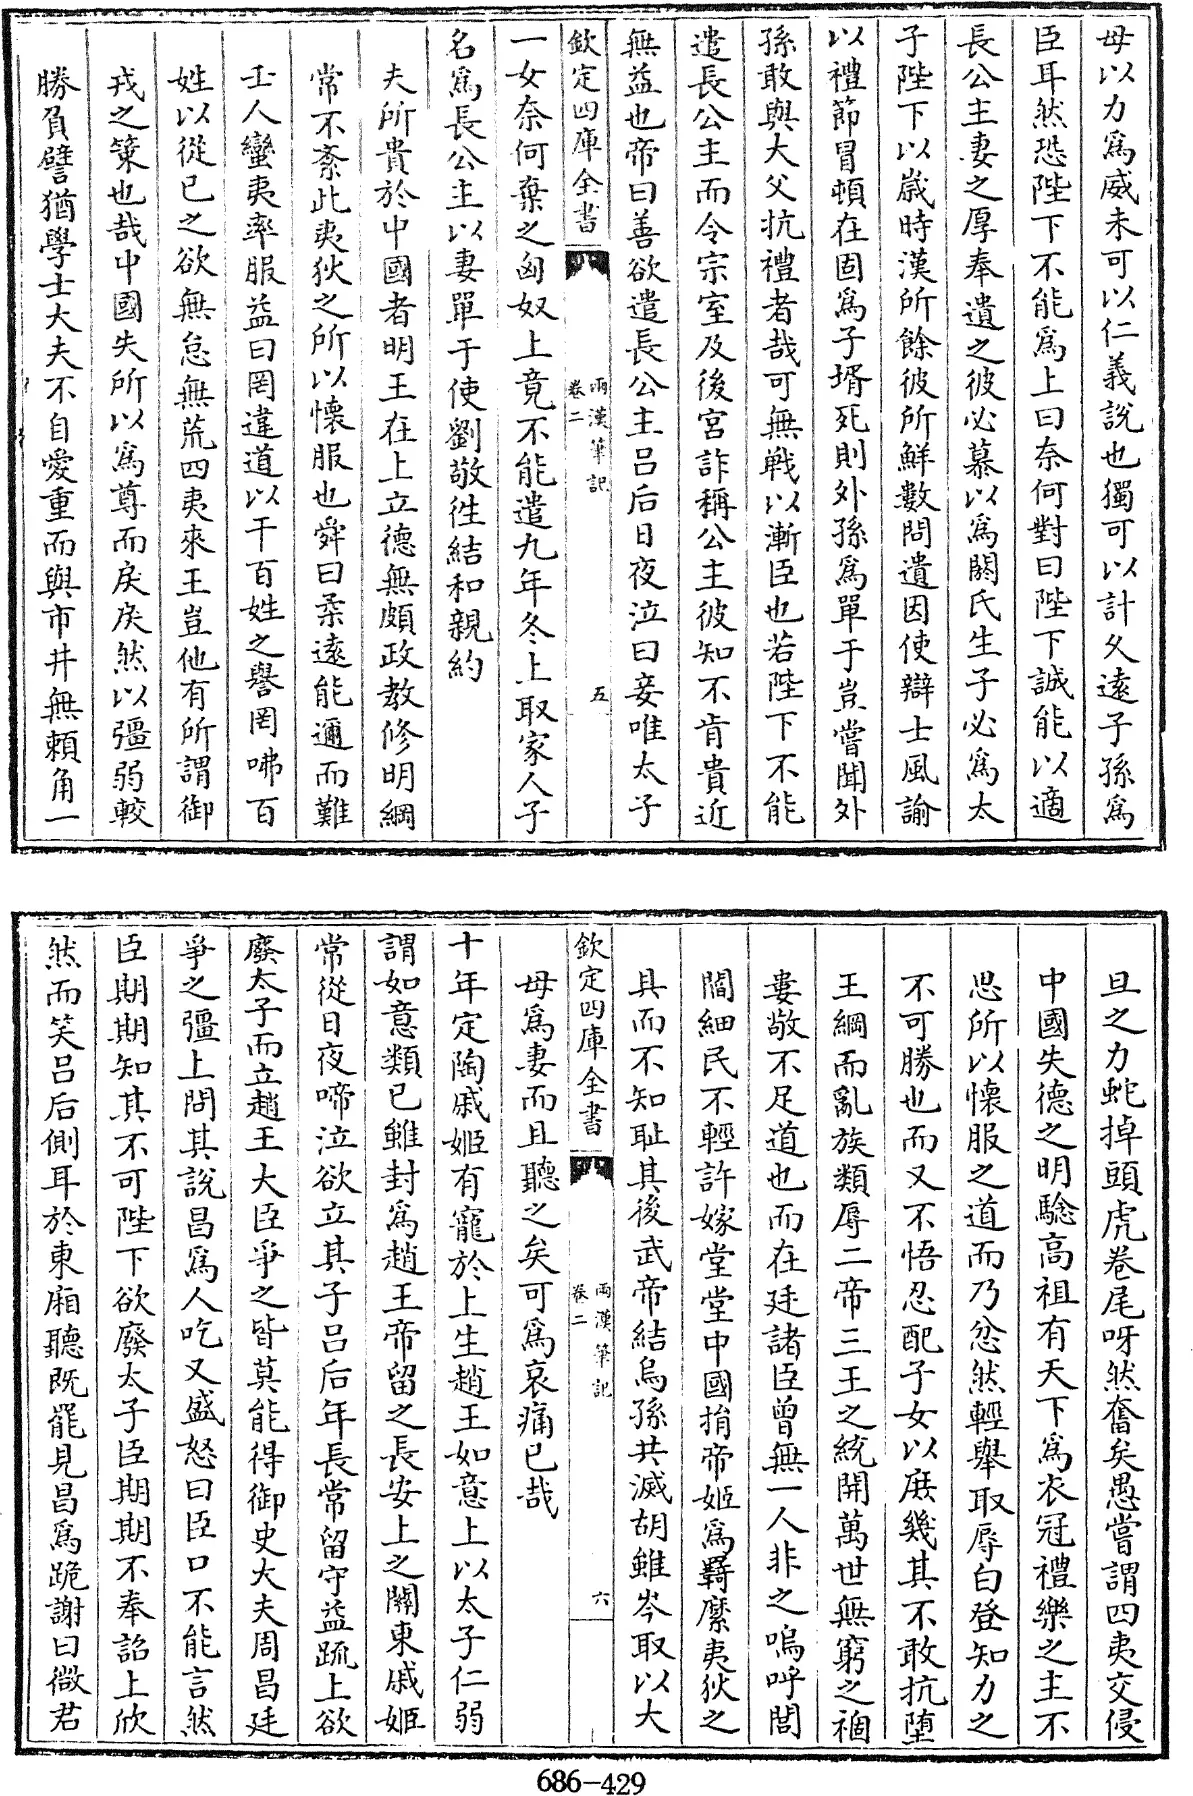 母以力為威未可以仁義說也獨可以計久遠子孫為
臣耳然恐陛下不能為上曰奈何對曰陛下誠能以適
長公主妻之厚奉遺之彼必慕以為閼氏生子必為太
子陛下以嵗時漢所餘彼所鮮數問遺因使辯士風諭
以禮節冒頓在固為子壻死則外孫為單于豈嘗聞外
孫敢與大父抗禮者哉可無戰以漸臣也若陛下不能
遣長公主而令宗室及後宮詐稱公主彼知不肯貴近
無益也帝曰善欲遣長公主吕后日夜泣曰妾唯太子
欽定四庫全書
兩漢筆記
卷二
五
一女奈何棄之匈奴上竟不能遣九年冬上取家人子
名為長公主以妻單于使劉敬徃結和親約
夫所貴於中國者明王在上立德無頗政教修明綱
常不紊此夷狄之所以懷服也舜曰柔遠能邇而難
壬人蠻夷率服益曰罔違道以干百姓之譽罔咈百
姓以從已之欲無怠無荒四夷來王豈他有所謂御
戎之策也哉中國失所以為尊而戾戾然以彊弱較
勝負譬猶學士大夫不自愛重而與市井無賴角一
旦之力蛇掉頭虎卷尾呀然奮矣愚嘗謂四夷交侵
中國失德之明騐高祖有天下為衣冠禮樂之主不
思所以懷服之道而乃忿然輕舉取辱白登知力之
不可勝也而又不悟忍配子女以庶幾其不敢抗墮
王綱而亂族類辱二帝三王之統開萬世無窮之禍
婁敬不足道也而在廷諸臣曾無一人非之嗚呼閭
閻細民不輕許嫁堂堂中國捐帝姬為羇縻夷狄之
具而不知耻其後武帝結烏孫共滅胡雖岑取以大
欽定四庫全書
兩漢筆記
卷二
六
母為妻而且聽之矣可為哀痛已哉
十年定陶戚姬有寵於上生趙王如意上以太子仁弱
謂如意類已雖封為趙王帝留之長安上之關東戚姬
常從日夜啼泣欲立其子吕后年長常留守益疏上欲
廢太子而立趙王大臣爭之皆莫能得御史大夫周昌廷
爭之彊上問其說昌為人吃又盛怒曰臣口不能言然
臣期期知其不可陛下欲廢太子臣期期不奉詔上欣
然而笑吕后側耳於東廂聽既罷見昌為跪謝曰微君
686-429